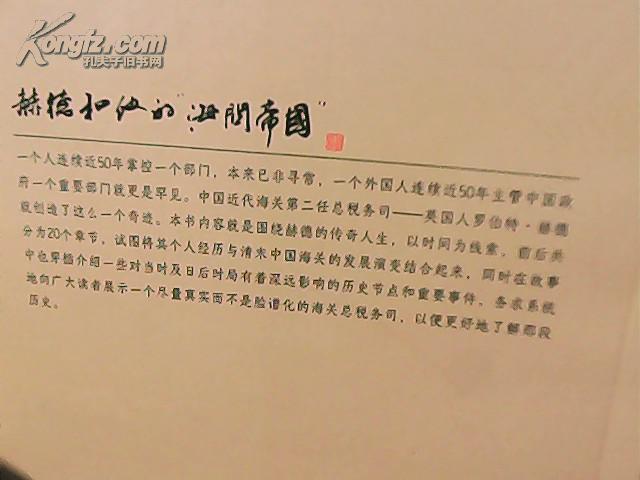 Kongfz.com
孔夫子旧书网
赫德和他的“海關帝國”
一个人连续近50年掌控一个部门，本来已非寻常，一个外国人连续近50年主管中国政
府一个重要部门就更是罕见。中国近代海关第二任总税务司——英国人罗伯特·赫德
就创造了这么一个奇迹。本书内容就是围绕赫德的传奇人生，以时间为线索，前后共
分为20个章节，试图将其个人经历与清末中国海关的发展演变结合起来，同时在故事
中也穿插介绍一些对当时及日后时局有着深远影响的历史节点和重要事件，务求系统
地向广大读者展示一个尽量真实而不是脸谱化的海关总税务司，以便更好地了解那段
历史。